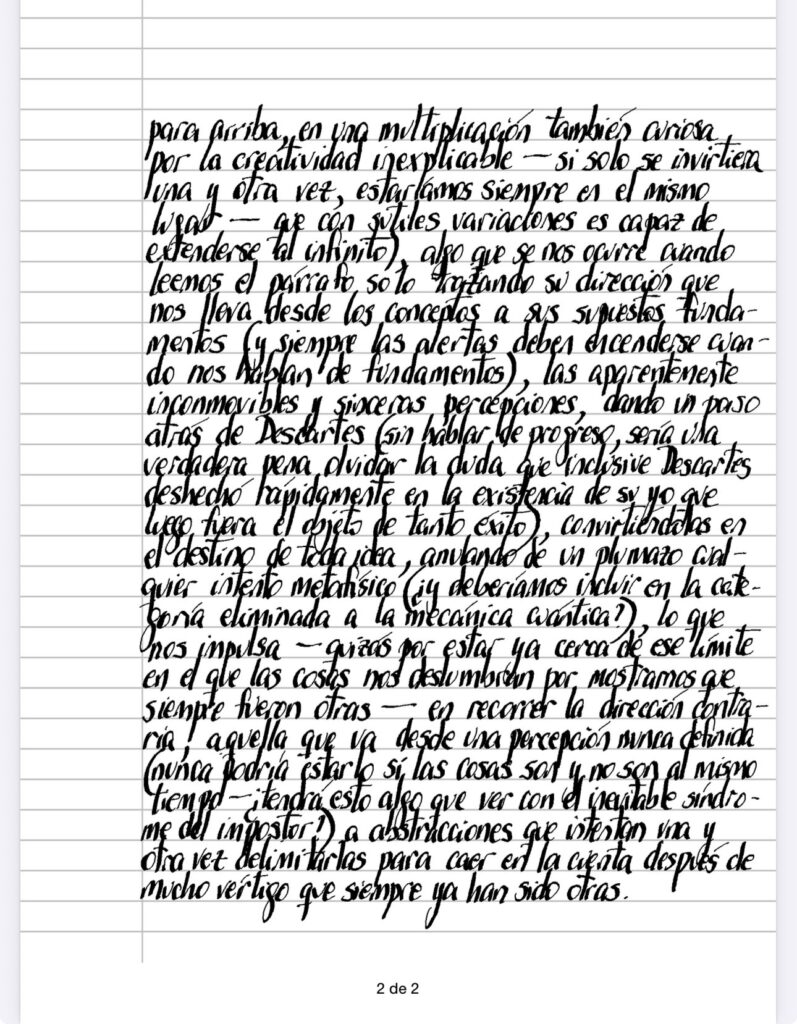 para arriba, en una multiplicación también curiosa
por la creatividad inexplicable — si solo se invirtiera
una y otra vez, estaríamos siempre en el mismo
lugar — que con sutiles variaciones es capaz de
extenderse al infinito), algo que se nos ocurre cuando
leemos el párrafo solo trazando su dirección que
nos lleva desde los conceptos a sus supuestos funda-
mentos (y siempre las alertas deben encenderse cuan-
do nos hablan de fundamentos), las aparentemente
inconmovibles y sinceras percepciones, dando un paso
atrás de Descartes (sin hablar de progreso, sería una
verdadera pena olvidar la duda que inclusive Descartes
deshechó rápidamente en la existencia de su yo que
luego fuera el objeto de tanto éxito), convirtiéndolas en
el destino de toda idea, anulando de un plumazo cual-
quier intento metafísico (¿y deberíamos incluir en la cate-
goría eliminada a la mecánica cuántica?), lo que
nos impulsa — quizás por estar ya cerca de ese límite
en el que las cosas nos deslumbran por mostrarnos que
siempre fueron otras — en recorrer la dirección contra-
ria, aquella que va desde una percepción nunca definida
(nunca podría estarlo si las cosas son y no son al mismo
tiempo — ¿tendrá esto algo que ver con el inevitable síndro-
me del impostor?) a abstracciones que intentan una y
otra vez delimitarlas para caer en la cuenta después de
mucho vértigo que siempre ya han sido otras.
2 de 2